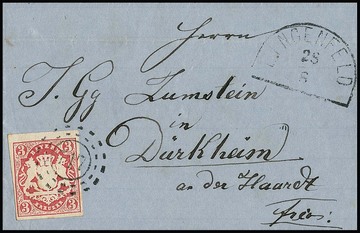 Herrn
LINGENFELD
25
6
J. Gg Lumstein
in
Dürkheim
an der Haardt
frei.
3 3
3 3